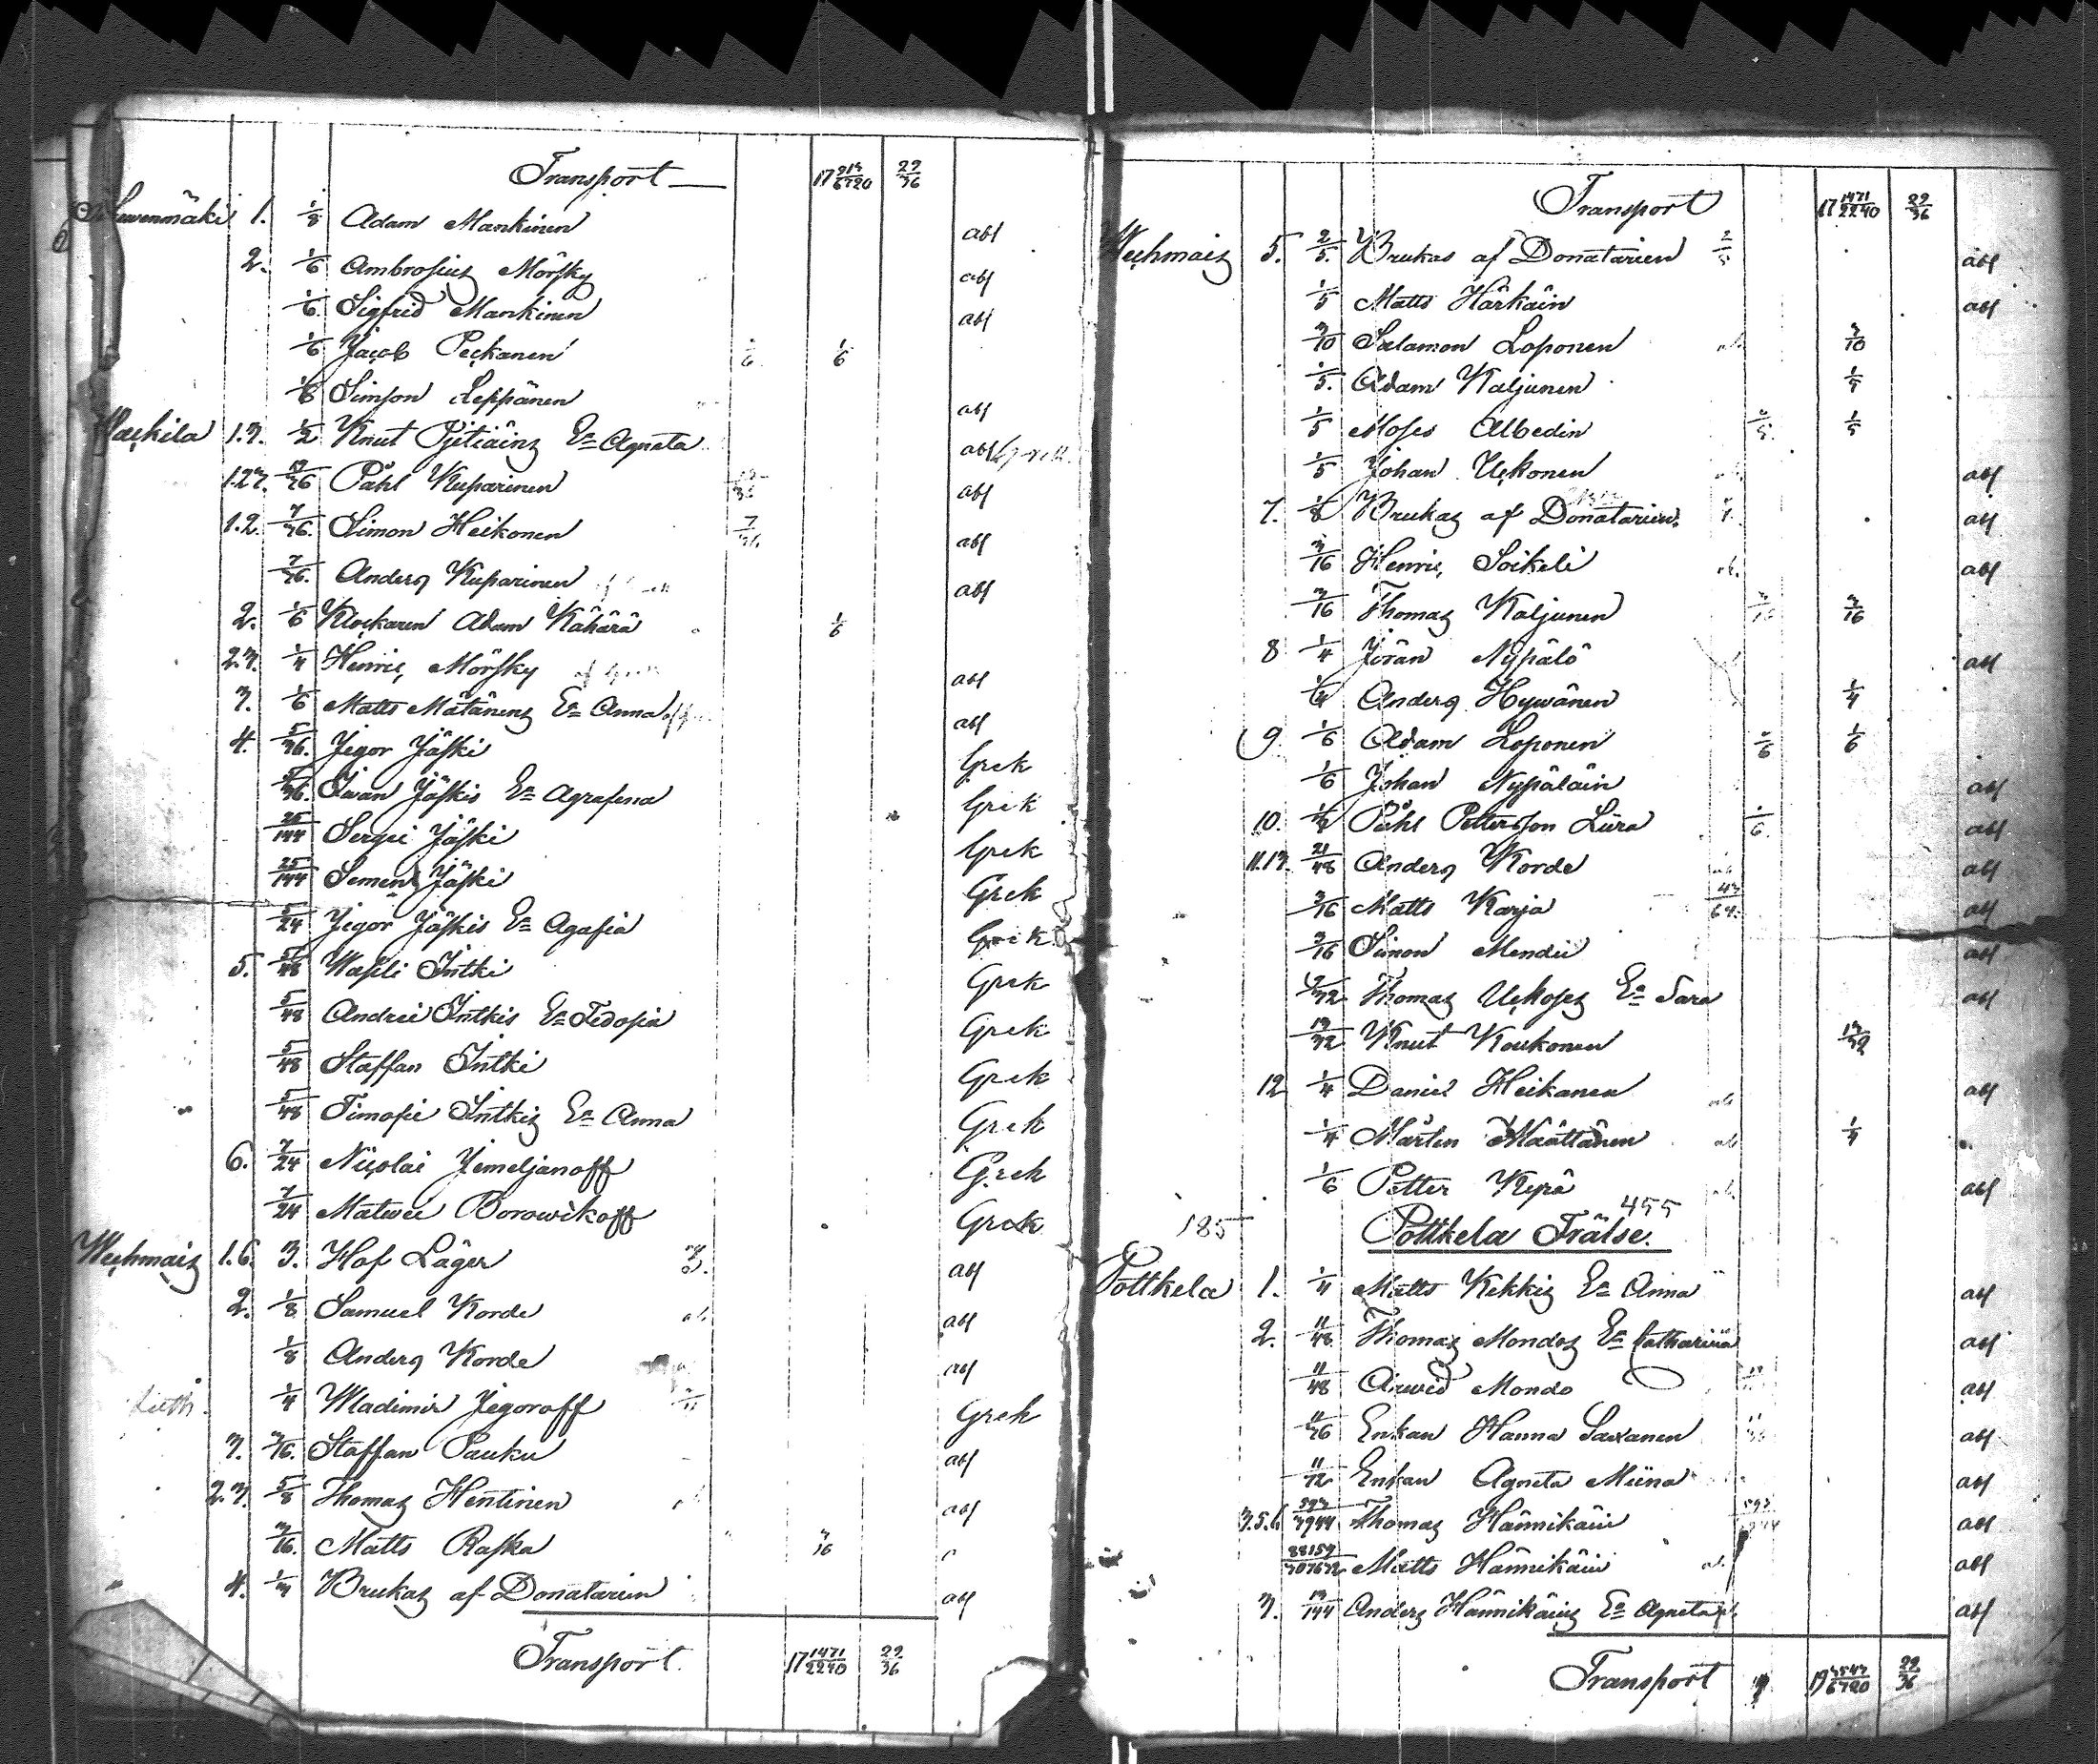 Transport — 17 913/6720 22/36
Suurenmäki 1. 1/8 Adam Mankinen abf
2. 1/6 Ambrosius Mörsky abf
1/6 Sigfrid Mankinen abf
1/6 Jacob Peckanen 1/6 1/6
1/6 Simson Leppänen abf
Wackila 1.3. 1/2 Knut Pjetiäinz Ea Agneta abf
1.2.3. 19/36 Påhl Kuparinen abf
1.2. 7/36 Simon Heikonen 7/36 abf
7/36 Anders Kuparinen abf
2. 1/6 Klockaren Adam Kähärä 1/6
2.3. 1/4 Henric Mörsky abf
3. 1/6 Matts Mätänenz Ea Anna abf
4. 5/36 Jegor Jäski Grek
5/36 Iwan Jäskis Ea Agrafena Grek
25/144 Sergei Jäski Grek
25/144 Semen Jäski Grek
5/24 Jegor Jäskis Ea Agafia Grek
5. 5/48 Wasili Intki Grek
5/48 Andrei Intkis Ea Fedosia Grek
5/48 Staffan Intki Grek
5/48 Timofei Intkis Ea Anna Grek
6. 7/24 Nicolai Jemeljanoff Grek
7/24 Matwei Borowikoff Grek
Wechmais 1.6. 3. Hof Läger 3. abf
2. 1/8 Samuel Korde abf
1/8 Anders Korde abf
1/4 Wladimir Jegoroff Grek
3. 3/16 Staffan Pauku abf
2.3. 5/8 Thomas Hentinen abf
3/16 Matts Raska 3/16
4. 1/3 Brukas af Donatarien abf
Transport. 17 1471/2240 22/36
Transport 17 1471/2240 22/36
Wechmais 5. 2/5 Brukas af Donatarien 2/5 abf
1/5 Matts Härkäin abf
3/10 Salamon Loponen 3/10
1/5 Adam Kaljunen 1/5
1/5 Moses Albedin 1/5 1/5
1/5 Johan Uckonen abf
7. 1/8 Brukas af Donatarien abf
3/16 Henric Soikeli abf
3/16 Thomas Kaljunen 3/16 3/16
8 1/4 Jöran Nypälö abf
1/4 Anders Hywänen 1/4
9. 1/6 Adam Loponen 1/6 1/6
1/6 Johan Nypäläin abf
10. 1/2 Påhl Pettersson Liira 1/6 abf
11.13. 21/48 Anders Korde abf
3/16 Matts Karja 43/64 abf
3/16 Simon Mendii abf
9/32 Thomas Uckoses Ea Sara abf
13/32 Knut Koukonen 13/32
12 1/4 Daniel Heikanen abf
1/4 Mårten Määttänen 1/4
1/6 Petter Kypä abf
185 Pottkela Frälse. 455
Pottkela 1. 1/4 Matts Kekkis Ea Anna abf
2. 11/48 Thomas Mondos Ea Catharina abf
11/48 Arwid Mondo abf
11/36 Enkan Hanna Saxanen abf
11/72 Enkan Agneta Miina abf
3.5.6. 593/3944 Thomas Hännikäin abf
Matts Hännikäin abf
3. 13/144 Anders Hännikäinz Ea Agneta abf
Transport 19 3543/6720 22/36